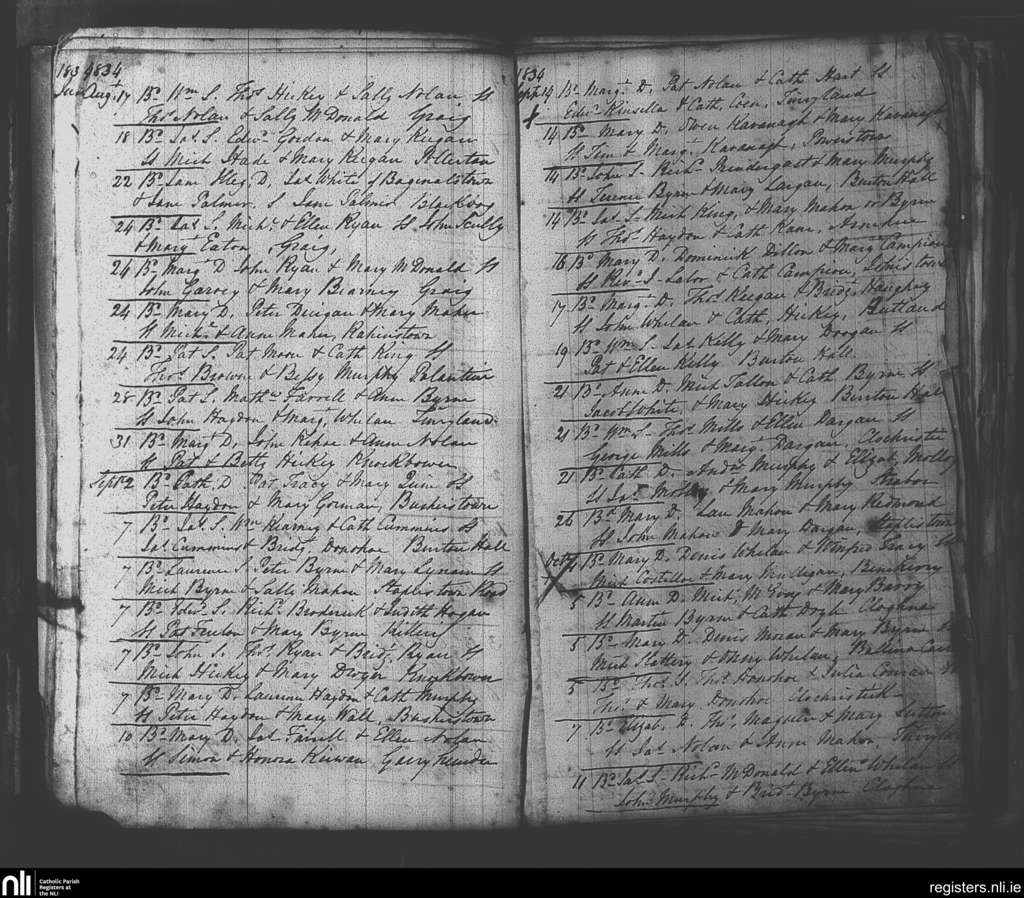 183 1834
Augt 17 Bd Wm S. Thos Hickey & Sally Nolan, Ss
Thos Nolan & Sally McDonald Graig
18 Bd Jas S. Edwd Gordon & Mary Keegan
Ss Mich Hade & Mary Keegan Pollerton
22 Bd Jane D, Jas White of Bagenalstown
& Jane Palmer, S Jane Palmer Blackbog
24 Bd Jas S. Michl & Ellen Ryan Ss John Scully
& Mary Eaton Graig,
24 Bd Margt D John Ryan & Mary McDonald Ss
John Garvey & Mary Bearney Graig
24 Bd Mary D. Peter Dinigan & Mary Maher
Ss Michl & Ann Maher, Rahinstown
24 Bd Pat S. Pat Moore & Cath King Ss
Thos Browne & Betsy Murphy Palantine
28 Bd Pat S. Mathw Farrell & Ann Byrne
Ss John Haydon & Margt Whelan Tinryland
31 Bd Margt D, John Kehoe & Ann Nolan
Ss Pat & Betty Hickey Knockbower
Septr 2 Bd Cath D Pat Tracy & Mary Ss
Peter Haydon & Mary Gorman, Busherstown
7 Bd Jas S. Wm Kearney & Cath Cummins Ss
Jas Cummins & Bridgt Donohoe Burton Hall
7 Bd Laurence S Peter Byrne & Mary Lynam Ss
Mich Byrne & Sally Mahon Staplestown Road
7 Bd Edwd S. Richd Broderick & Judith Hogan
Ss Pat Fenlon & Mary Byrne
7 Bd John S. Thos Ryan & Bridgt Ryan Ss
Mich Hickey & Mary Dwyer Knockbower
7 Bd Mary D. Laurence Haydon & Cath Murphy
Ss Peter Haydon & Mary Wall, Busherstown
10 Bd Mary D. Jas Farrell & Ellen Nolan
Ss Simon & Honora Kirwan
1834
Septr 14 Bd Margt D. Pat Nolan & Cath Hart Ss
Edwd Kinsella & Cath Tinryland
14 Bd Mary D. Owen Kavanagh & Mary Kavanagh
Ss Tim & Margt Kavanagh, Powerstown
14 Bd John S. Richd Prendergast & Mary Murphy
Ss Terence Byrne & Mary Burton Hall
14 Bd Jas S. Mich King, & Mary Mahon or Byrne
Ss Thos Haydon & Cath
16 Bd Mary D. Dominick Dillon & Margt Campion
Ss Lalor & Cath Campion, Johnstown
17 Bd Margt D. Thos Keegan & Bridgt
Ss John Whelan & Cath, Hickey, Rutland
19 Bd Wm S. Jas Kelly & Mary Doogan Ss
Pat & Ellen Kelly Burton Hall
21 Bd Anne D. Mich Tallon & Cath Byrne Ss
Jacob White, & Mary Hickey Burton Hall
21 Bd Wm S. Thos Mills & Ellen Dargan Ss
George Mills & Margt Dargan,
21 Bd Cath D. Andw Murphy & Elizabt Molloy
Ss Jas Molloy & Mary Murphy
26 Bd Mary D. Lau Mahon & Mary Redmond
Ss John Mahon & Mary Dargan, Staplestown
Octr Bd Mary D. Denis Whelan & Winfred Tracy Ss
Mich Costillow & Mary Mulligan,
5 Bd Ann D. Mich & Mary Barry
Ss Martin Byrne & Cath Doyle Cloghna
5 Bd Mary D. Denis Moran & Mary Byrne
Mich Slattery & Mary Whelan,
5 Bd Thos S. Thos Donohoe & Julia
Thos & Mary Donohoe
7 Bd Elizab. D. Thos Maguire & Mary Sutton
Ss Jas Nolan & Anne Mahon,
11 Bd Jas S. Richd McDonald & Ellen Whelan Ss
John Murphy & Bridt Byrne Cloghna
nli Catholic Parish
Registers at
the NLI
registers.nli.ie